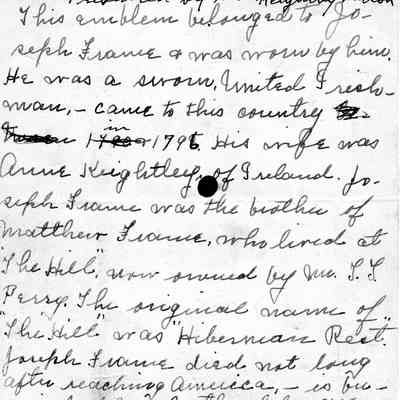 This emblem belonged to Jo-
seph Frame & was worn by him.
He was a sworn, United Irish-
man, - came to this country
in 1796. His wife was
Anne Keightley, of Ireland. Jo-
seph Frame was the brother of
Matthew Frame, who lived at
"The Hill", now owned by Mr. T. T.
Perry. The original name of
"The Hill" was "Hibernian Rest."
Joseph Frame died not long
after reaching America, - is bu-